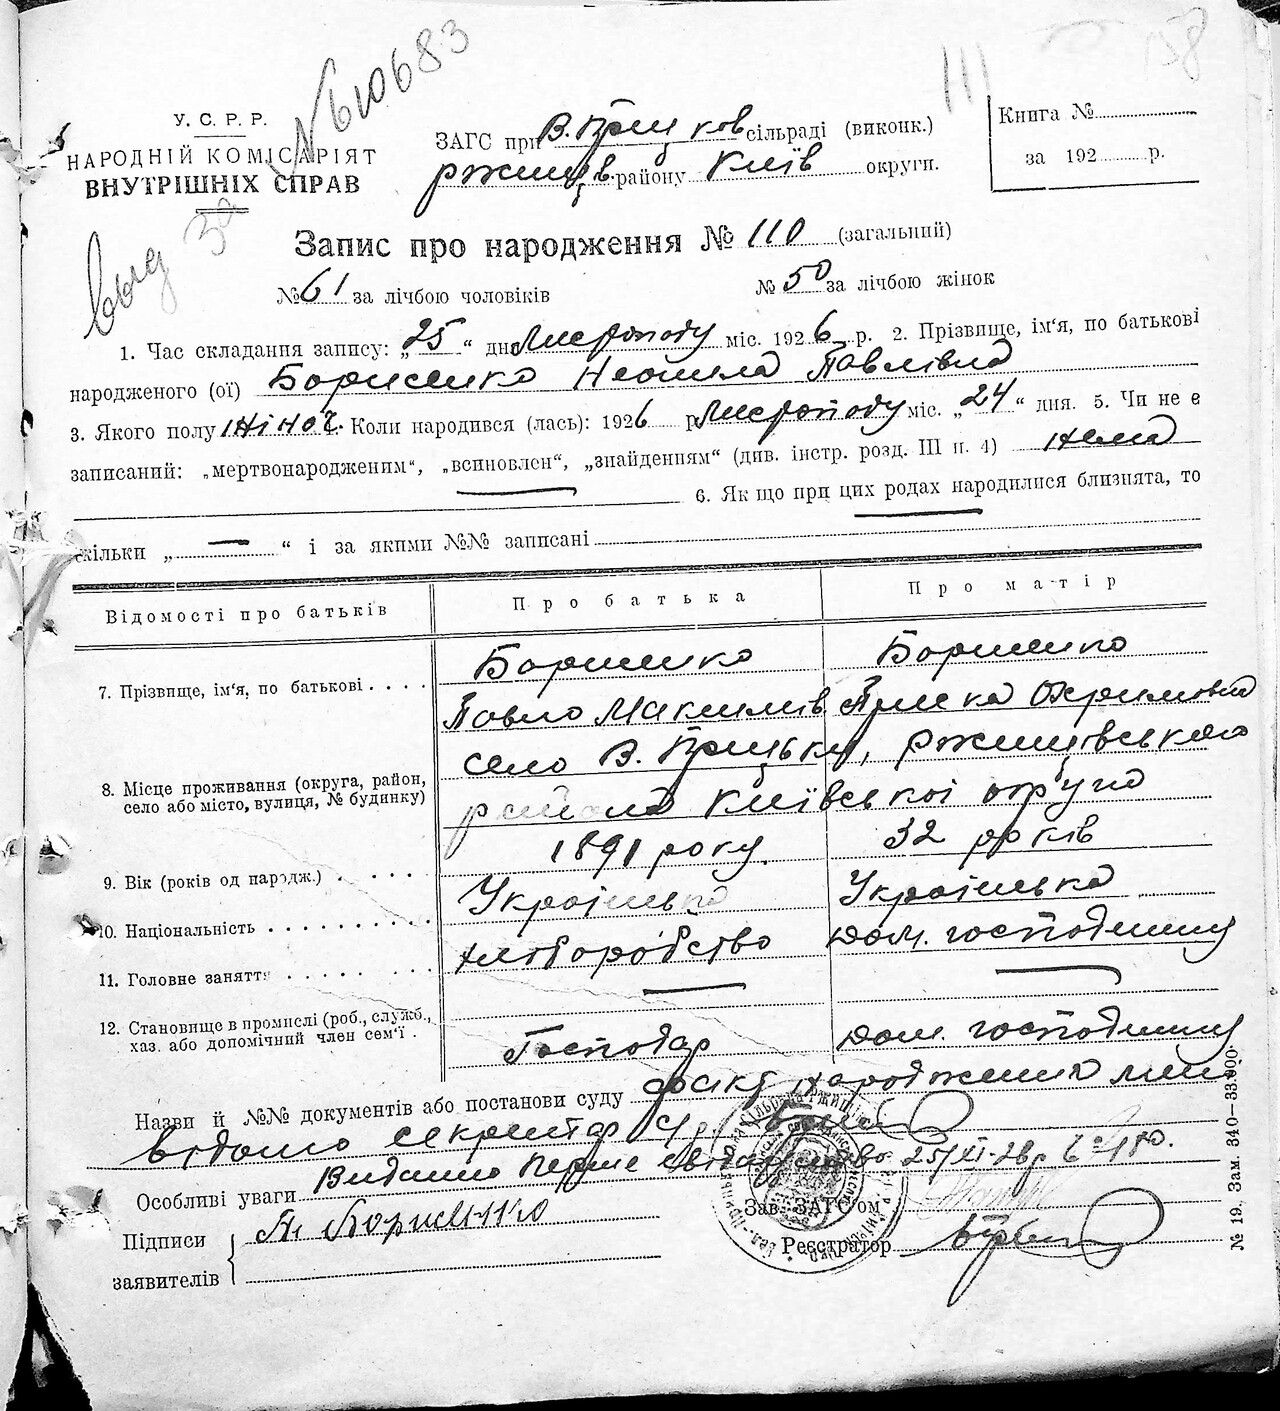 № 610683
111
У. С. Р. Р.
НАРОДНІЙ КОМІСАРІЯТ
ВНУТРІШНІХ СПРАВ
вид
ЗАГС при В.Прицков сільраді (виконк.)
ржищів. району Київ округи.
Книга №
за 192 р.
Запис про народження № 110 (загальний)
№ 61 за лічбою чоловіків № 50 за лічбою жінок
1. Час складання запису: „25“ дня Листопаду міс. 1926 р. 2. Прізвище, ім'я, по батькові
народженого (ої) Борисенко Неонила Павлівна
3. Якого полу жіноч. Коли народився (лась): 1926 р. Листопаду міс. „24“ дня. 5. Чи не є
записаний: „мертвонародженим“, „всиновлен“, „знайденням“ (див. інстр. розд. III п. 4) нема
6. Як що при цих родах народилися близнята, то
скільки „ — “ і за якими №№ записані
Відомості про батьків Про батька Про матір
7. Прізвище, ім'я, по батькові . . . . Борисенко Борисенко
Павло Максимів Пріська Охримовна
8. Місце проживання (округа, район, село або місто, вулиця, № будинку) село В. Прицьки, ржищівського
району Київської округи
9. Вік (років од народж.) . . . . . 1891 року. 32 років
10. Національність . . . . . . . . . . Українська Українська
11. Головне заняття . . . . . . . . хліборобство дом. господиню
12. Становище в промислі (роб., служб., хаз. або допомічний член сем'ї . Господар дом. господиню
Назви й №№ документів або постанови суду факт народження мені
відомо секретар
Особливі уваги Видано перше свідоцтво 25/XI-26р.
Підписи
заявителів
Борисенко
Зав. ЗАГС'ом
Реєстратор
№ 19. Зам. 340—33.000